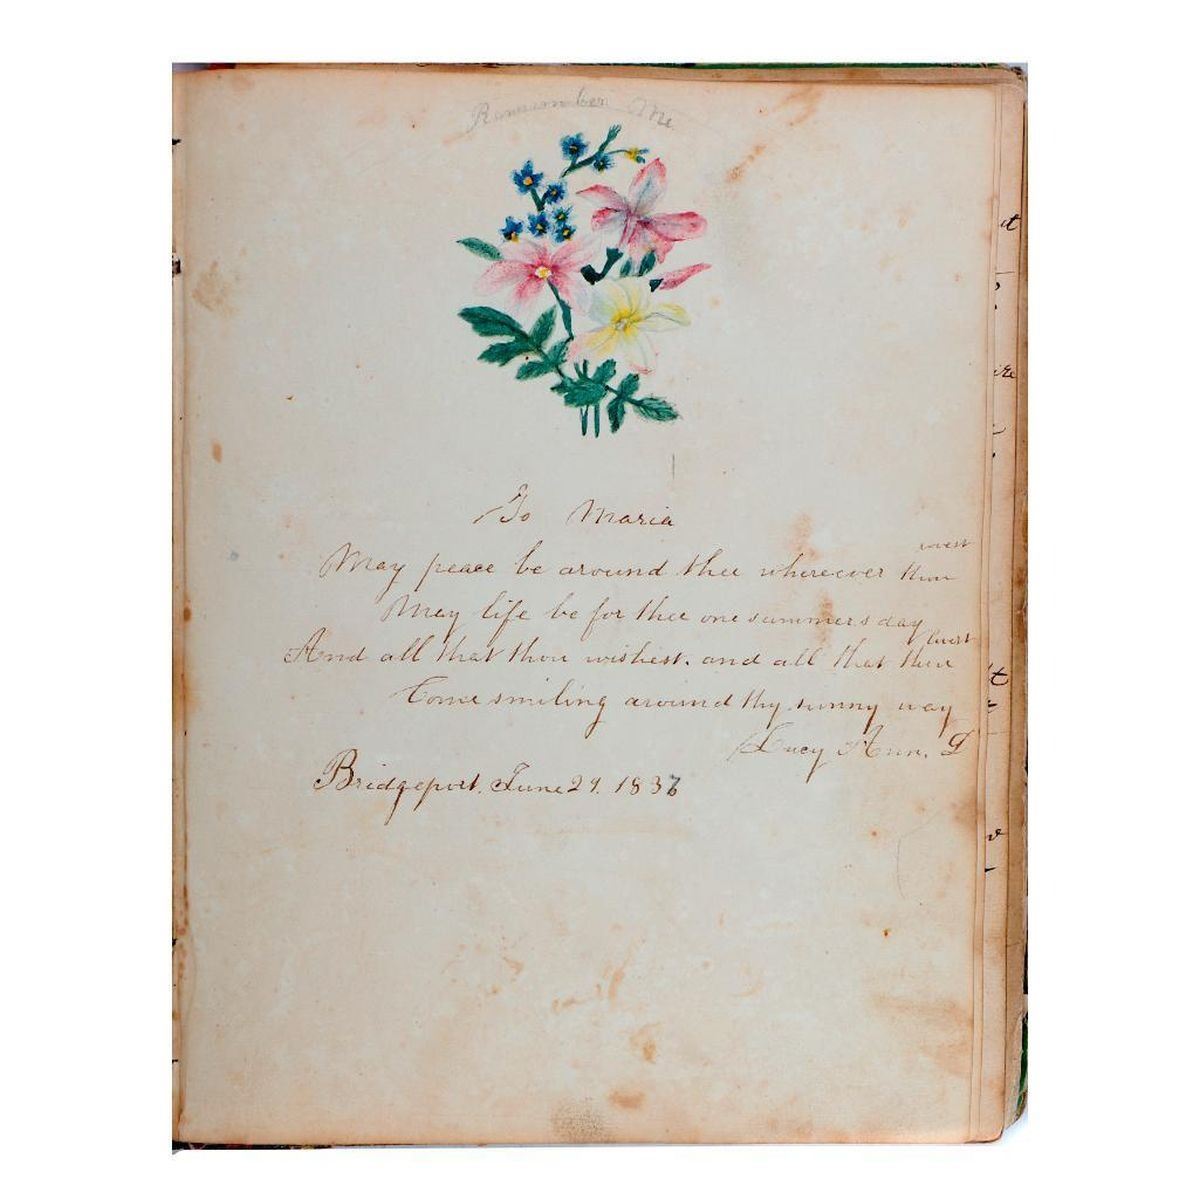 Remember Me.
To Maria
May peace be around thee whereever thou rovest
May life be for thee one summers day
And all that thou wishest. and all that thou lovest
Come smiling around thy sunny way
Lucy Ann. D
Bridgeport. June 29. 1837